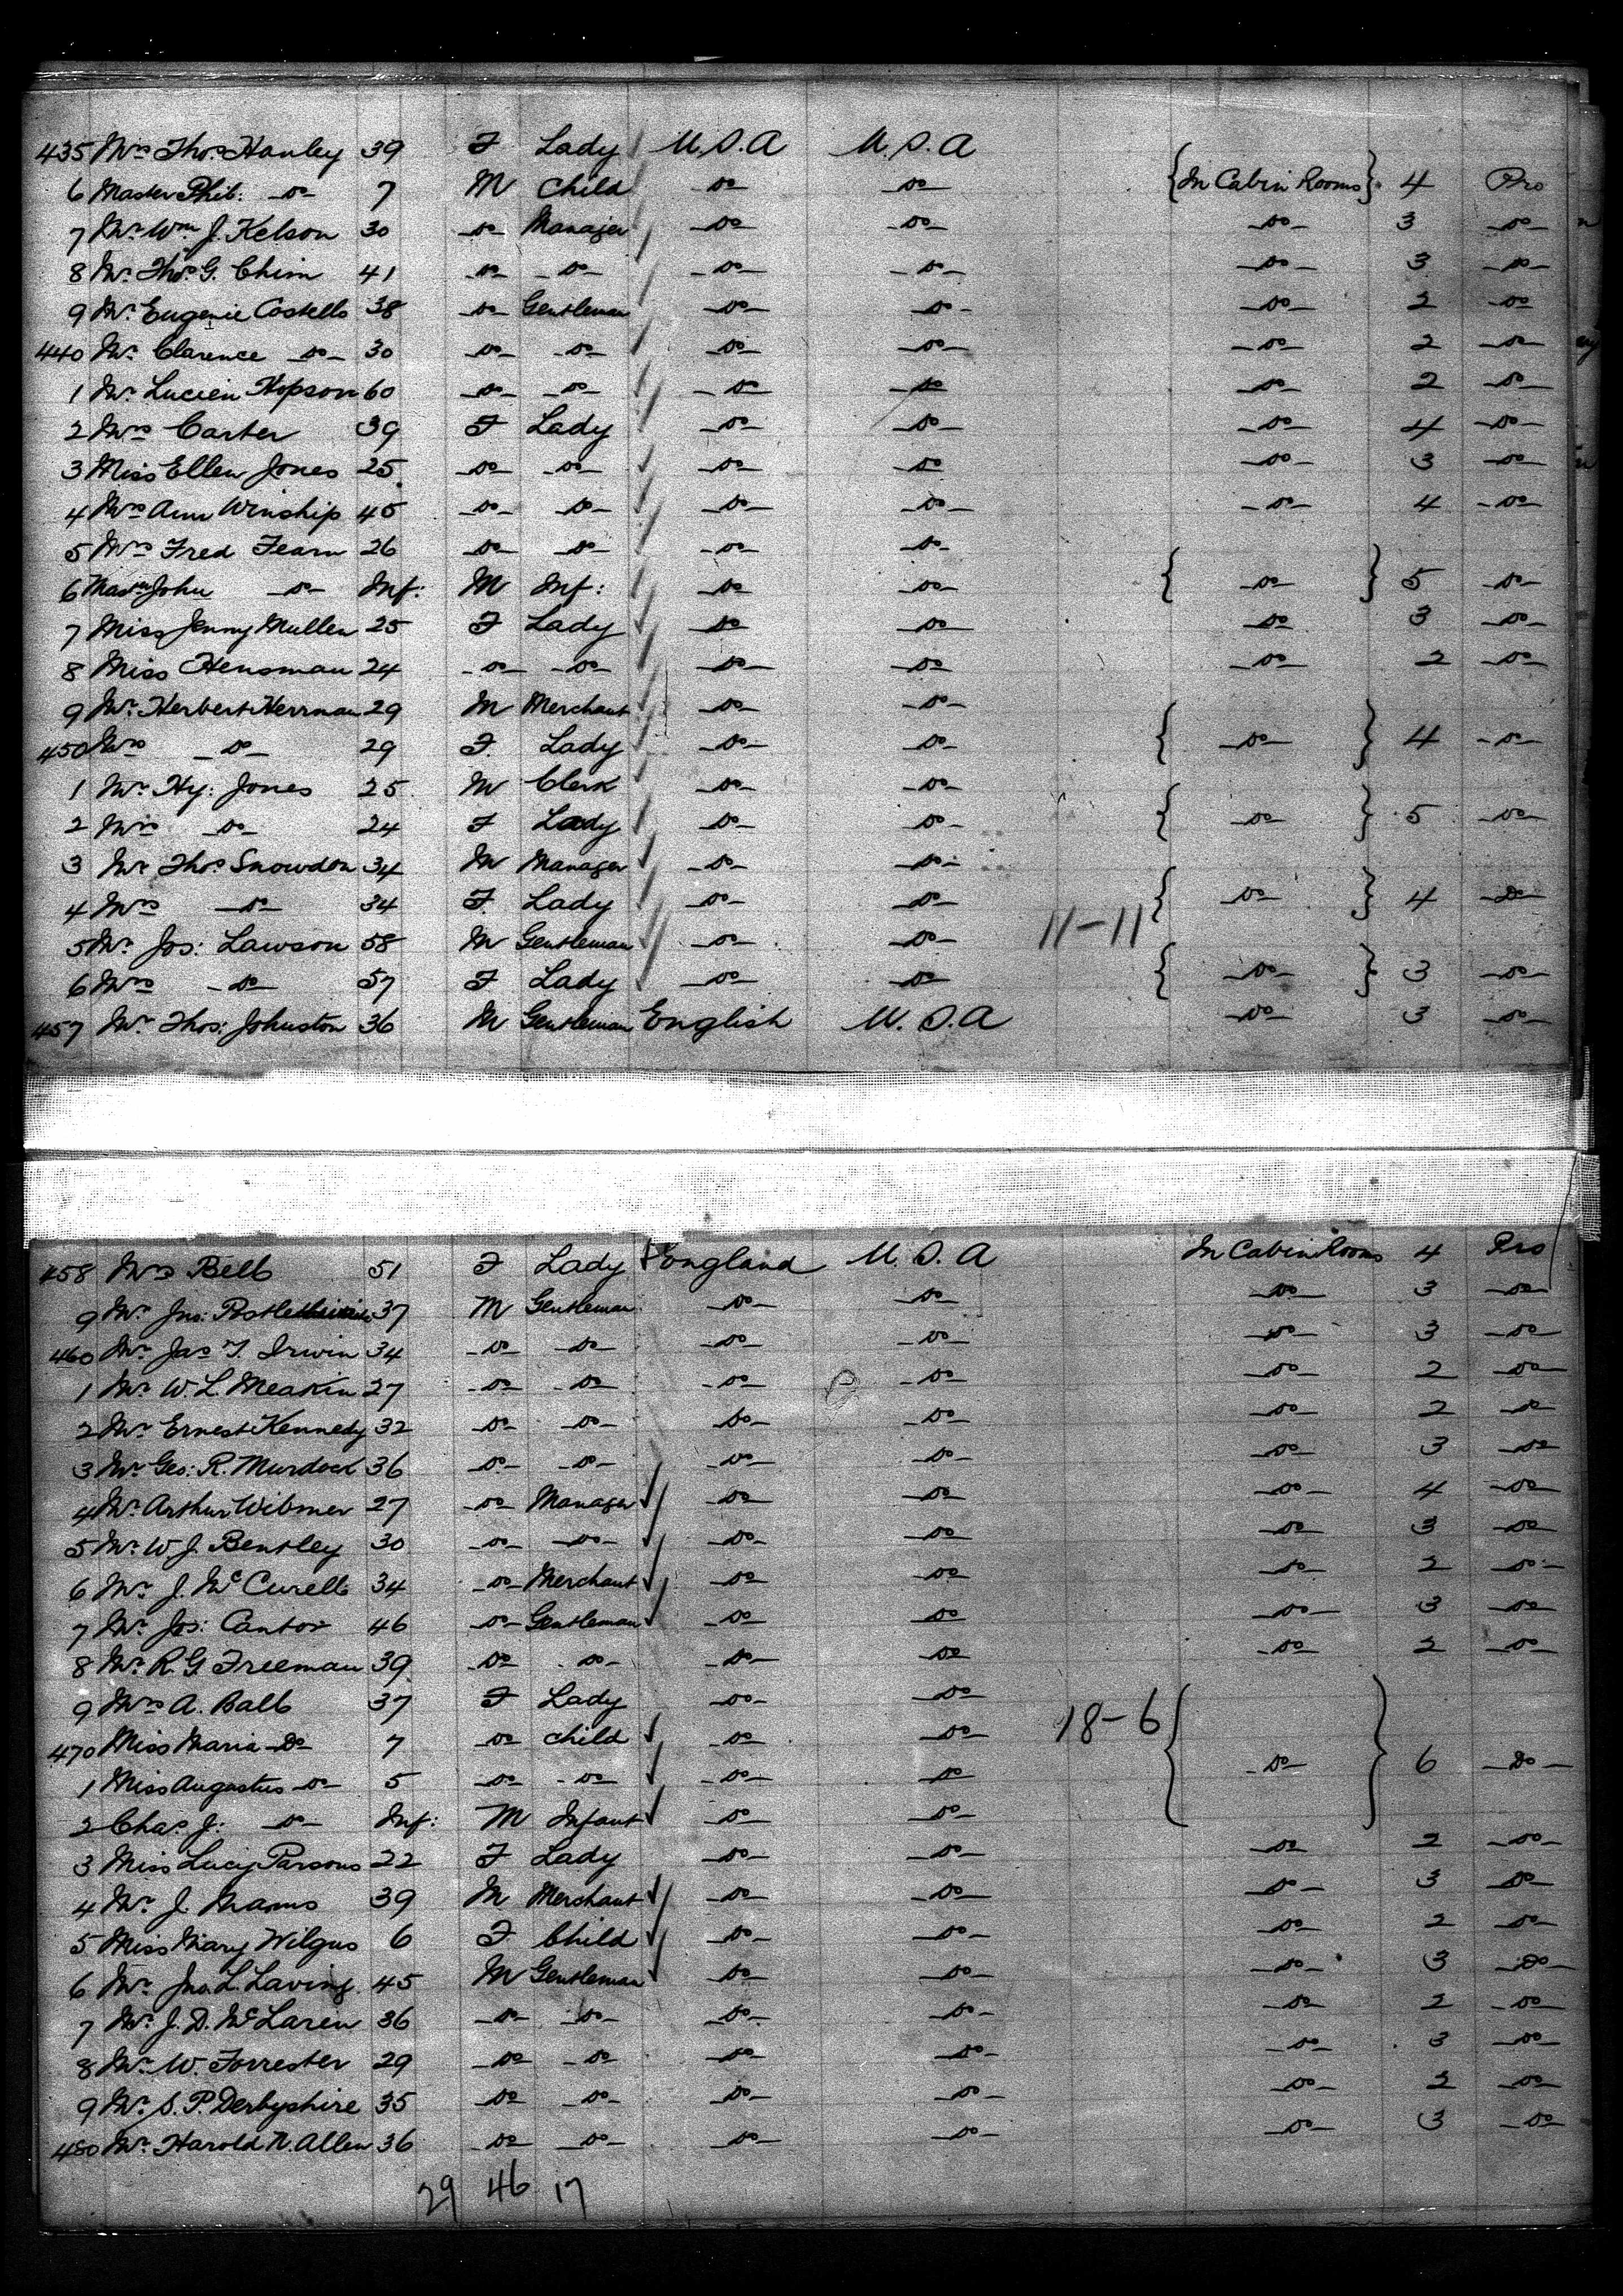 435 Mrs Thos. Hanley 39 F Lady U.S.A U.S.A
6 Master Phil: -do- 7 M Child -do- -do- {In Cabin Rooms} 4 Pro
7 Mr. Wm J. Kelson 30 -do- Manager -do- -do- -do- 3 -do-
8 Mr. Thos. G. Chim 41 -do- -do- -do- -do- -do- 3 -do-
9 Mr. Eugenie Costello 38 -do- Gentleman -do- -do- -do- 2 -do-
440 Mr. Clarence -do- 30 -do- -do- -do- -do- -do- 2 -do-
1 Mr. Lucien Hopson 60 -do- -do- -do- -do- -do- 2 -do-
2 Mrs Carter 39 F Lady -do- -do- -do- 4 -do-
3 Miss Ellen Jones 25 -do- -do- -do- -do- -do- 3 -do-
4 Mrs Ann Winship 45 -do- -do- -do- -do- -do- 4 -do-
5 Mrs Fred Fearn 26 -do- -do- -do- -do-
6 Mastr John -do- Inf: M Inf: -do- -do- { -do- } 5 -do-
7 Miss Jenny Mullen 25 F Lady -do- -do- -do- 3 -do-
8 Miss Hensman 24 -do- -do- -do- -do- -do- 2 -do-
9 Mr. Herbert Herrman 29 M Merchant -do- -do-
450 Mrs -do- 29 F. Lady -do- -do- { -do- } 4 -do-
1 Mr. Hy: Jones 25 M Clerk -do- -do-
2 Mrs -do- 24 F Lady -do- -do- { -do- } 5 -do-
3 Mr. Thos. Snowdon 34 M Manager -do- -do-
4 Mrs -do- 34 F. Lady -do- -do- { -do- } 4 -do-
5 Mr. Jos: Lawson 58 M Gentleman -do- -do- 11-11
6 Mrs -do- 57 F Lady -do- -do- { -do- } 3 -do-
457 Mr. Thos: Johnston 36 M Gentleman English U.S.A -do- 3 -do-
458 Mrs Bell 51 F Lady England U.S.A In Cabin Rooms 4 Pro
9 Mr. Jno: 37 M Gentleman -do- -do- -do- 3 -do-
460 Mr. Jas T. Irwin 34 -do- -do- -do- -do- -do- 3 -do-
1 Mr. W. L. Meakin 27 -do- -do- -do- -do- -do- 2 -do-
2 Mr. Ernest Kennedy 32 -do- -do- -do- -do- -do- 2 -do-
3 Mr. Geo: R. Murdock 36 -do- -do- -do- -do- -do- 3 -do-
4 Mr. Arthur Wibmer 27 -do- Manager -do- -do- -do- 4 -do-
5 Mr. W. J. Bentley 30 -do- -do- -do- -do- -do- 3 -do-
6 Mr. J. McCurell 34 -do- Merchant -do- -do- -do- 2 -do-
7 Mr. Jos: Cantor 46 -do- Gentleman -do- -do- -do- 3 -do-
8 Mr. R. G. Freeman 39 -do- -do- -do- -do- -do- 2 -do-
9 Mrs A. Ball 37 F Lady -do- -do-
470 Miss Maria -Do- 7 -do- Child -do- -do- 18-6
1 Miss Augustus -do- 5 -do- -do- -do- -do- { -do- } 6 -do-
2 Chas. J: -do- Inf: M Infant -do- -do-
3 Miss Lucy Parsons 22 F Lady -do- -do- -do- 2 -do-
4 Mr. J. 39 M Merchant -do- -do- -do- 3 -do-
5 Miss Mary Wilgus 6 F Child -do- -do- -do- 2 -do-
6 Mr. Jno. L. Laving 45 M Gentleman -do- -do- -do- 3 -do-
7 Mr. J. D. McLaren 36 -do- -do- -do- -do- -do- 2 -do-
8 Mr. W. Forrester 29 -do- -do- -do- -do- -do- 3 -do-
9 Mr. S. P. Derbyshire 35 -do- -do- -do- -do- -do- 2 -do-
480 Mr. Harold N. Allen 36 -do- -do- -do- -do- -do- 3 -do-
29 46 17